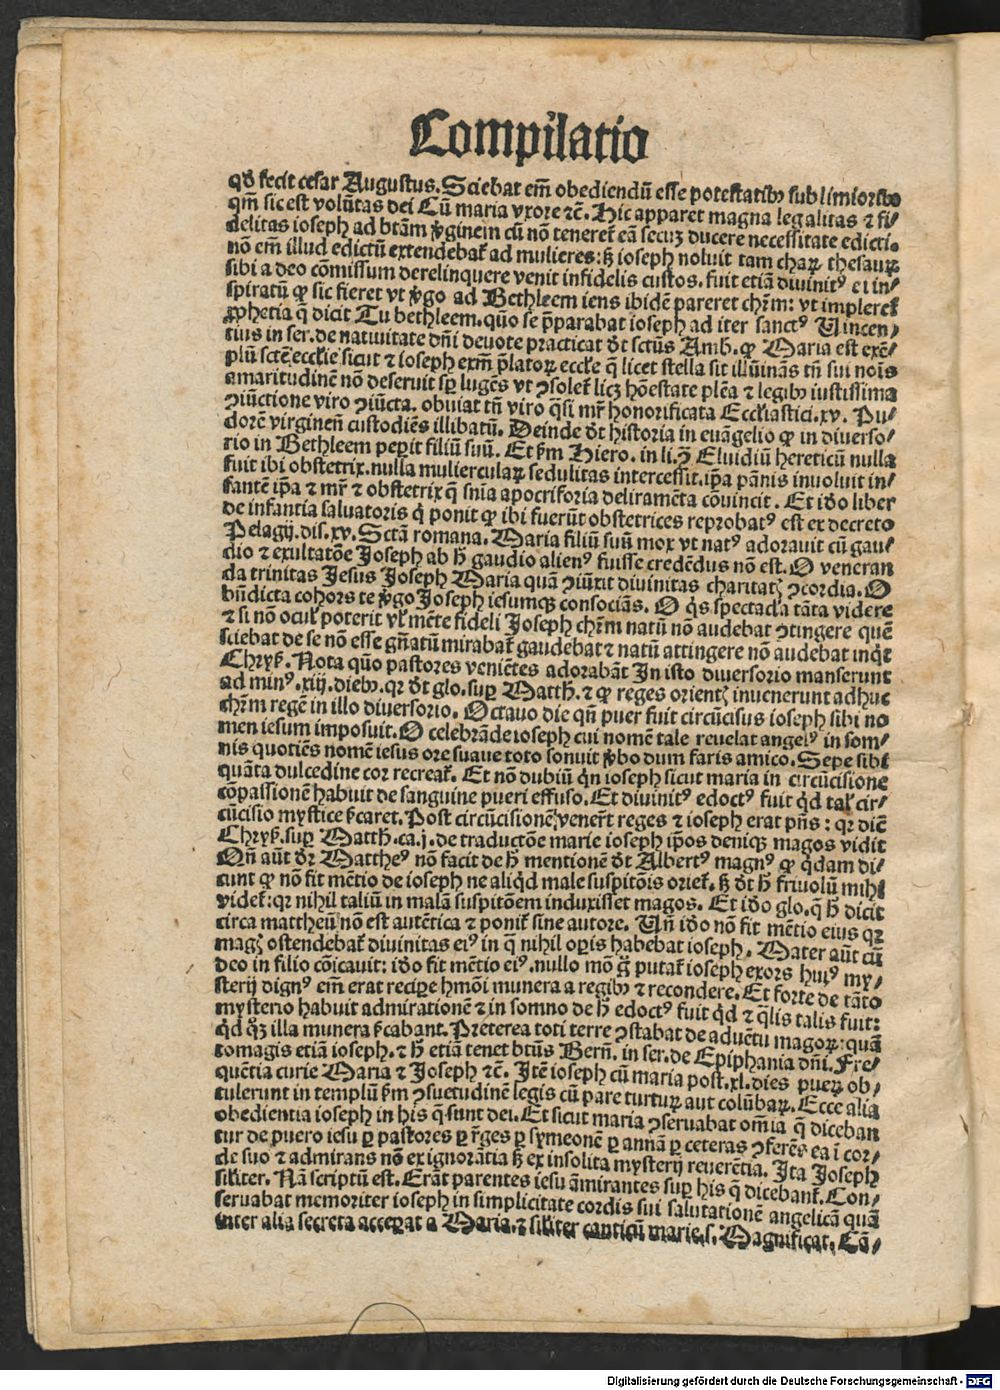 Compilatio
qḋ fecit cesar Augustus. Sciebat em̄ obediendū esse potestatibꝰ sublimioribꝰ
qm̄ sic est volūtas dei Cū maria vxore ⁊c̄. Hic apparet magna legalitas ⁊ fi/
delitas ioseph ad btām v̓ginem cū nō teneret̄ eā secuꝫ ducere necessitate edicti.
nō em̄ illud edictū extendebat̄ ad mulieres: sꝫ ioseph noluit tam charū thesaurū
sibi a deo cōmissum derelinquere venit infidelis custos. fuit etiā diuinitꝰ ei in/
spiratū ꝙ sic fieret vt v̓go ad Bethleem iens ibidē pareret chr̄m: vt impleret̄
ꝓphetia q̄ dicit Tu bethleem. quō se p̄parabat ioseph ad iter sanctꝰ Vincen/
tius in ser. de natiuitate dn̄i deuote practicat ḋt sctūs Amb. ꝙ Maria est exē/
plū sctē eccl̄ie sicut ⁊ ioseph exm̄ p̄latoꝝ eccl̄e q̄ licet stella sit illūinās tn̄ sui nois̄
amaritudinē nō deseruit sꝑ lugēs vt ꝯsolet̄ licꝫ hōestate plēa ⁊ legibꝰ iustissima
ꝯiūctione viro ꝯiūcta. obuiat tn̄ viro q̄si mr̄ honorificata Eccl̄iastici.xv. Pu/
dorē virginen̄ custodiēs illibatū. Deinde ḋt historia in euāgelio ꝙ in diuerso/
rio in Bethleem peꝑit filiū suū. Et ẜm Hiero. in li.ꝯ̄ Eluidiū hereticū nulla
fuit ibi obstetrix. nulla muliercularꝝ sedulitas intercessit. ip̄a pānis inuoluit in/
fantē ip̄a ⁊ mr̄ ⁊ obstetrix q̄ sn̄ia apocriforia deliramēta cōuincit. Et iḋo liber
de infantia saluatoris q̄ ponit ꝙ ibi fuerūt obstetrices reprobatꝰ est ex decreto
Pelagij. dis.xv. Sctā romana. Maria filiū suū mox vt natꝰ adorauit cū gau/
dio ⁊ exultatōe Joseph ab h̄ gaudio alienꝰ fuisse credēdus nō est. O veneran
da trinitas Jesus Joseph Maria quā ꝯiūxit diuinitas charitatꝭ ꝯcordia. O
bn̄dicta cohors te v̓go Joseph iesumqꝫ consociās. O q̄s spectacl̄a tāta videre
⁊ si nō ocul̄ poterit vl̄ mēte fideli Joseph chr̄m natū nō audebat ꝯtingere quē
sciebat de se nō esse gn̄atū mirabat̄ gaudebat ⁊ natū attingere nō audebat inq̄t
Chryẜ. Nota quō pastores veniētes adorabāt In isto diuersorio manserunt
ad minꝰ.xiij. diebꝰ. qꝛ ḋt glo. suꝑ Matth. ⁊ ꝙ reges orientꝭ inuenerunt adhuc
chr̄m regē in illo diuersorio. Octauo die qn̄ puer fuit circūcisus ioseph sibi no
men iesum imposuit. O celebrāde ioseph cui nomē tale reuelat angelꝰ in som/
nis quotiēs nomē iesus ore suaue toto sonuit v̓bo dum faris amico. Sepe sibi
quāta dulcedine cor recreat̄. Et nō dubiū qn̄ ioseph sicut maria in circūcisione
cōpassionē habuit de sanguine pueri effuso. Et diuinitꝰ edoctꝰ fuit qḋ tal̄ cir/
cūcisio mystice ẜcaret. Post circūcisionē, vener̄t reges ⁊ ioseph erat pn̄s: qꝛ dic̄
Chryẜ. suꝑ Matth. ca.j. de traductōe marie ioseph ip̄os deniqꝫ magos vidit
Qn̄ aūt ḋr Mattheꝰ nō facit de h̄ mentionē ḋt Albertꝰ magnꝰ ꝙ q̄dam di/
cunt ꝙ nō fit mētio de ioseph ne aliq̄d male suspitōis oriet̄. sꝫ ḋt h̄ friuolū mihi
videt̄: qꝛ nihil taliū in malā suspitōem induxisset magos. Et iḋo glo. q̄ h̄ dicit
circa mattheū nō est autētica ⁊ ponit̄ sine autore. Vn̄ iḋo nō fit mētio eius qꝛ
magꝭ ostendebat̄ diuinitas eiꝰ in q̄ nihil oꝑis habebat ioseph. Mater aūt cū
deo in filio cōicauit: iḋo fit mētio eiꝰ. nullo mō g̊ putat̄ ioseph exors huiꝰ my/
sterij dignꝰ em̄ erat recipe hmōi munera a regibꝰ ⁊ recondere. Et forte de tāto
mysterio habuit admirationē ⁊ in somno de h̄ edoctꝰ fuit qḋ ⁊ q̄lis talis fuit:
qḋ qꝫ illa munera ẜcabant. Preterea toti terre ꝯstabat de aduētu magoꝝ: quā
tomagis etiā ioseph. ⁊ h̄ etiā tenet btūs Bern̄. in ser. de Epiphania dn̄i. Fre/
quētia curie Maria ⁊ Joseph ⁊c̄. Itē ioseph cū maria post.xl. dies pueꝝ ob/
tulerunt in templū ẜm ꝯsuetudinē legis cū pare turturꝝ aut colūbaꝝ. Ecce alia
obedientia ioseph in his q̄ sunt dei. Et sicut maria ꝯseruabat om̄ia q̄ diceban
tur de puero iesu ꝑ pastores ꝑ r̄ges ꝑ symeonē ꝑ annā ꝑ ceteras ꝯferēs ea ī cor/
de suo ⁊ admirans nō ex ignorātia sꝫ ex insolita mysterij reuerētia. Ita Joseph
sil̄iter. Nā scriptū est. Erāt parentes iesu āmirantes suꝑ his q̄ dicebant̄. Con/
seruabat memoriter ioseph in simplicitate cordis sui salutationē angelicā quā
inter alia secreta acceꝑat a Maria. ⁊ sil̄iter canticū marie.s. Magnificat. Cū/
Digitalisierung gefördert durch die Deutsche Forschungsgemeinschaft - DFG